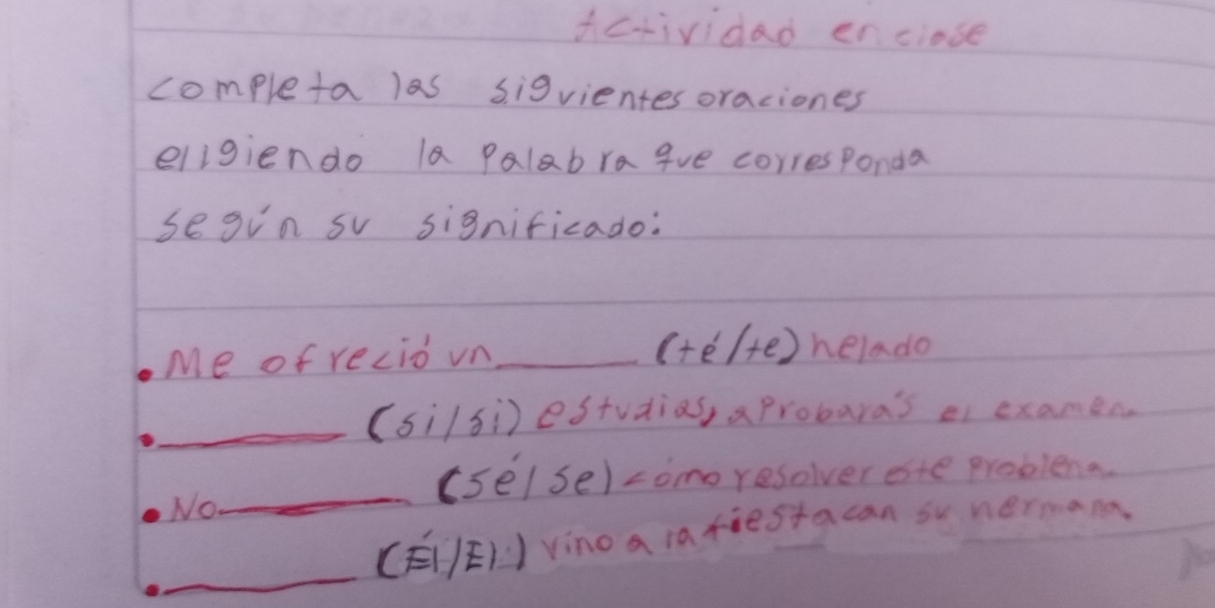 Actividad en clase
completa las siguientes oraciones
eligiendo la palabra que corresponda
según su significado:
• Me ofreció un ______ (té/te) helado
• ______ (si/sí) estudias, aprobarás el examen.
• No ______ (sé/se) cómo resolver este problema.
• ______ (Él/El) vino a la fiesta con su hermana.